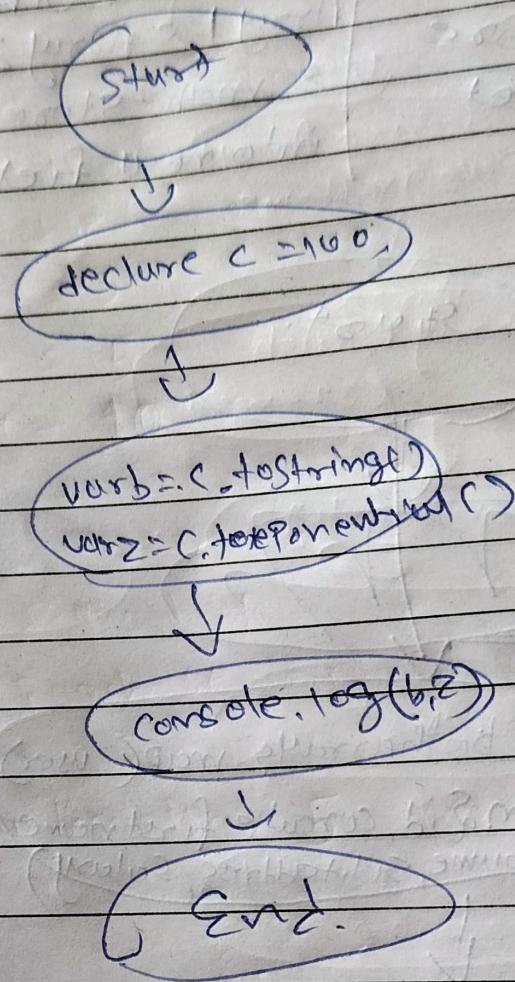 Start
declare c = 100,
var b = c.toString()
var z = c.toexponential()
console.log(b,z)
End.